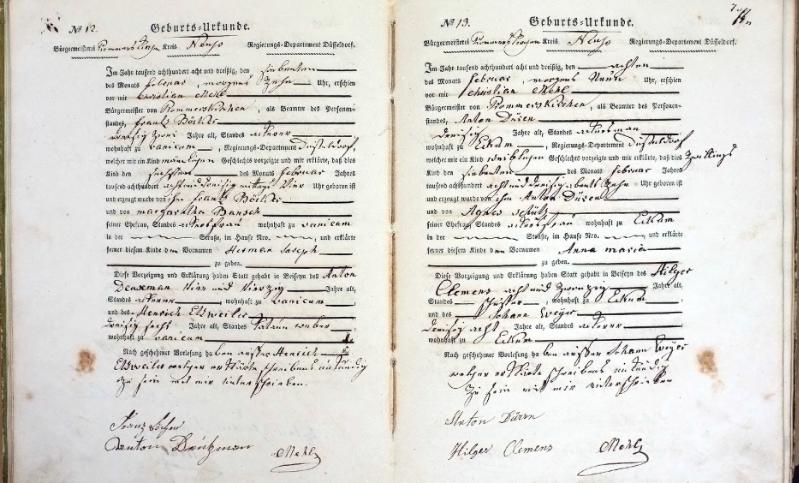 No 12. Geburts-Urkunde.
Bürgermeisterei Rommerskirchen Kreis Neuss Regierungs-Departement Düsseldorf.
Im Jahr tausend achthundert acht und dreißig, den siebenten
des Monats Februar, morgens Zehn Uhr, erschien
vor mir Christian Mehl
Bürgermeister von Rommerskirchen, als Beamter des Personen-
standes, Frantz
dreisig zwei Jahre alt, Standes Ackerer wohnhaft
zu vanicum, Regierungs-Departement Düsseldorf,
welcher mir ein Kind männlichen Geschlechts vorzeigte und mir erklärte, daß dies
Kind den sechsten des Monats Februar Jahres
tausend achthundert acht und dreisig mittags Vier Uhr geboren ist
und erzeugt wurde von ihm Frantz
und von margaretha
seiner Ehefrau, Standes wohnhaft zu vanicum
in der Straße, im Hause Nro. und erklärte
ferner diesem Kinde den Vornamen Herman Joseph
zu geben.
Diese Vorzeigung und Erklärung haben Statt gehabt in Beiseyn des Anton
Vier und Vierzig Jahre alt,
Standes Ackerer, wohnhaft zu vanicum
und des Henrich Etzweiler
dreisig sechs Jahre alt, Standes weber
wohnhaft zu vanicum
Nach geschehener Vorlesung haben ausser Henrich
Etzweiler welcher erklärte schreibens unkundig
zu sein mit mir unterschrieben.
Franz
Anton
Mehl
No 13. Geburts-Urkunde.
Bürgermeisterei Rommerskirchen Kreis Neuss Regierungs-Departement Düsseldorf.
Im Jahr tausend achthundert acht und dreißig, den achten
des Monats Februar, morgens Neun Uhr, erschien
vor mir Christian Mehl
Bürgermeister von Rommerskirchen, als Beamter des Personen-
standes, Anton Düren
dreisig Jahre alt, Standes Ackersman wohnhaft
zu Eckum, Regierungs-Departement Düsseldorf
welcher mir ein Kind weiblichen Geschlechts vorzeigte und mir erklärte, daß dies
Kind den siebenten des Monats Februar Jahres
tausend achthundert acht und dreisig abents Zehn Uhr geboren ist
und erzeugt wurde von ihm Anton Düren
und von Agnes Schütz
seiner Ehefrau, Standes wohnhaft zu Eckum
in der Straße, im Hause Nro. und erklärte
ferner diesem Kinde den Vornamen Anna maria
zu geben.
Diese Vorzeigung und Erklärung haben Statt gehabt in Beiseyn des Hilger
Clemens acht und zwanzig Jahre alt,
Standes, wohnhaft zu Eckum
und des Johann Weyer
dreisig acht Jahre alt, Standes Ackerer
wohnhaft zu Eckum
Nach geschehener Vorlesung haben ausser Johann Weyer
welcher erklärte schreibens unkundig
zu sein mit mir unterschrieben
Anton Düren
Hilger Clemens Mehl